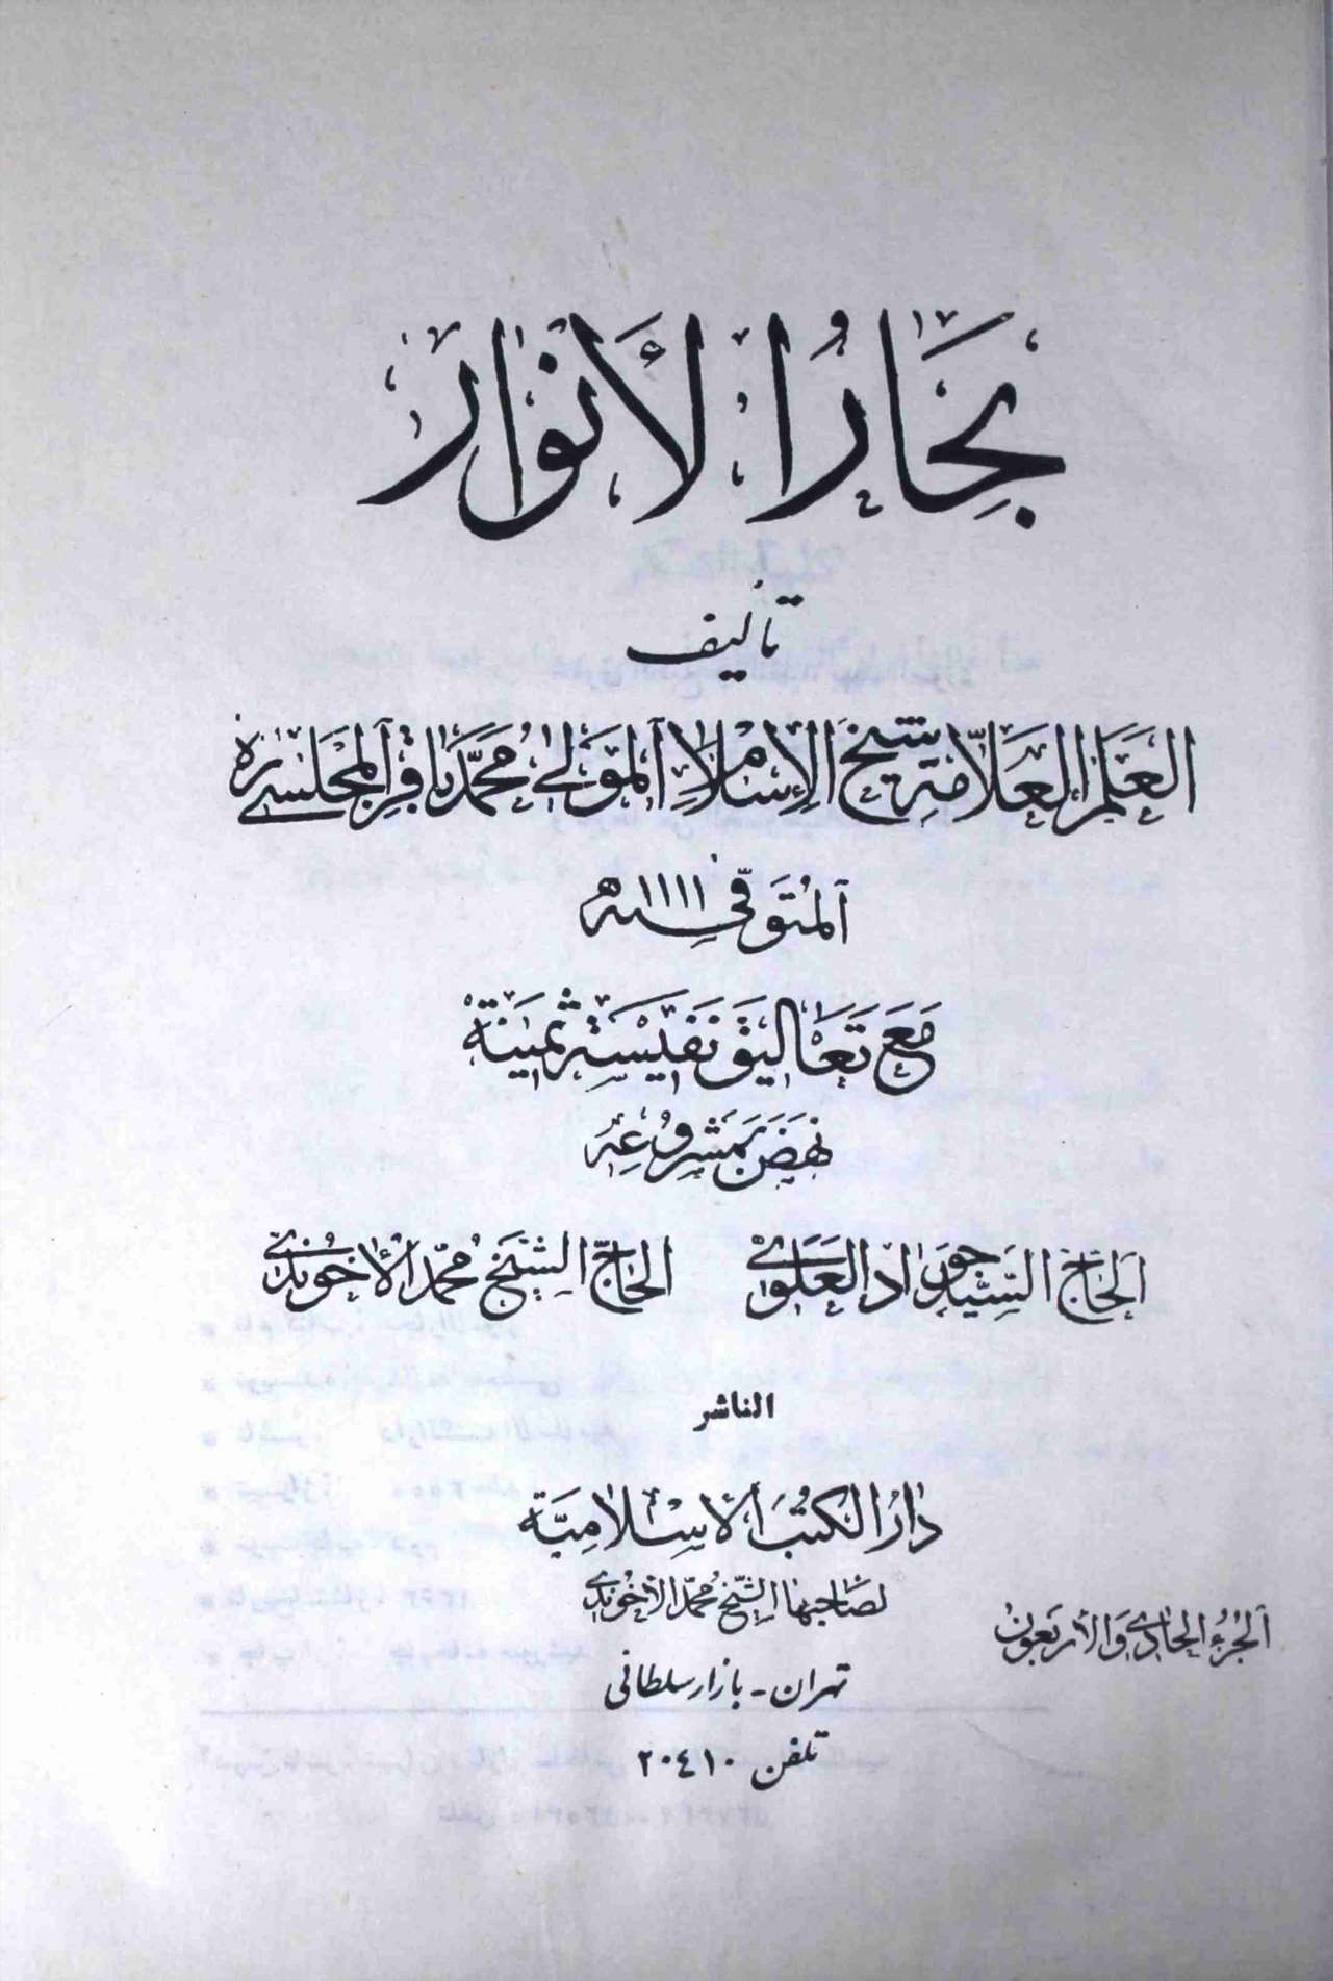 بِحَارُ الأَنْوَار
تأليف
العَلَم العَلّامَة شَيخ الإسْلام المَولى مُحَمَّد بَاقِر المَجلِسي ره
المُتَوَفّى سنة ١١١١ ه
مَعَ تَعَاليق نَفيسَة ثمينَة
نهَضَ بمَشروعِه
الحَاجّ السَيّد جَوَاد العَلَوي    الحَاجّ الشيَخ مُحَمّد الآخُوندي
الناشر
دَارُ الكتُبُ الاسِلامِيَّة
لصَاحِبهَا الشيّخ مُحمّد الآخُوندي
الجُزءُ الحَادي وَالأربَعون
تهران - بازار سلطانی
تلفن ٢٠٤١٠